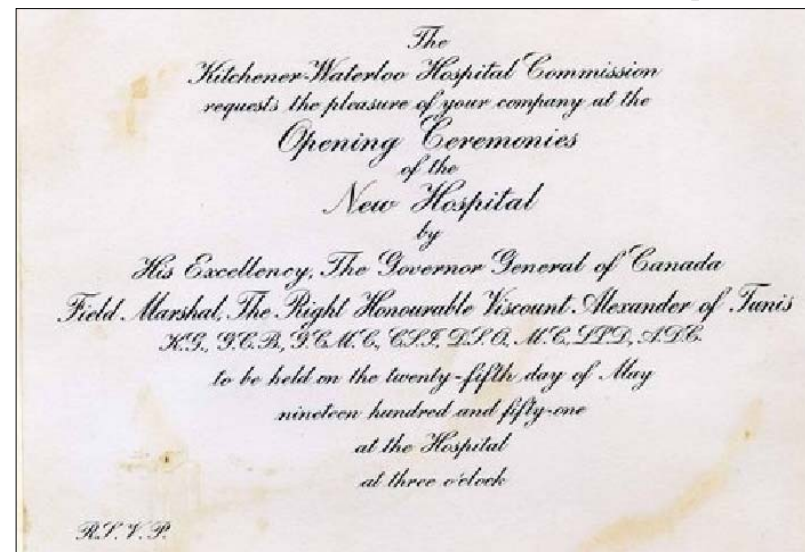 The
Kitchener-Waterloo Hospital Commission
requests the pleasure of your company at the
Opening Ceremonies
of the
New Hospital
by
His Excellency, The Governor General of Canada
Field Marshal, The Right Honourable Viscount Alexander of Tunis
K.G., G.C.B., G.C.M.G., C.S.I., D.S.O., M.C., LL.D., A.D.C.
to be held on the twenty-fifth day of May
nineteen hundred and fifty-one
at the Hospital
at three o'clock
R.S.V.P.